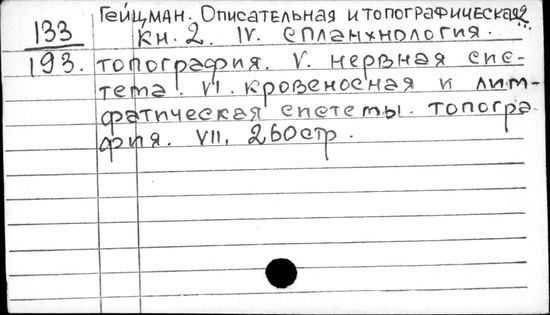 Гейцман. Описательная и топографическая
133 кн. 2. IV. спланхнология.
193. топография. V. нервная сис-
тема. VI. кровеносная и лим-
фатическая системы. топогра-
фия. VII, 260стр.